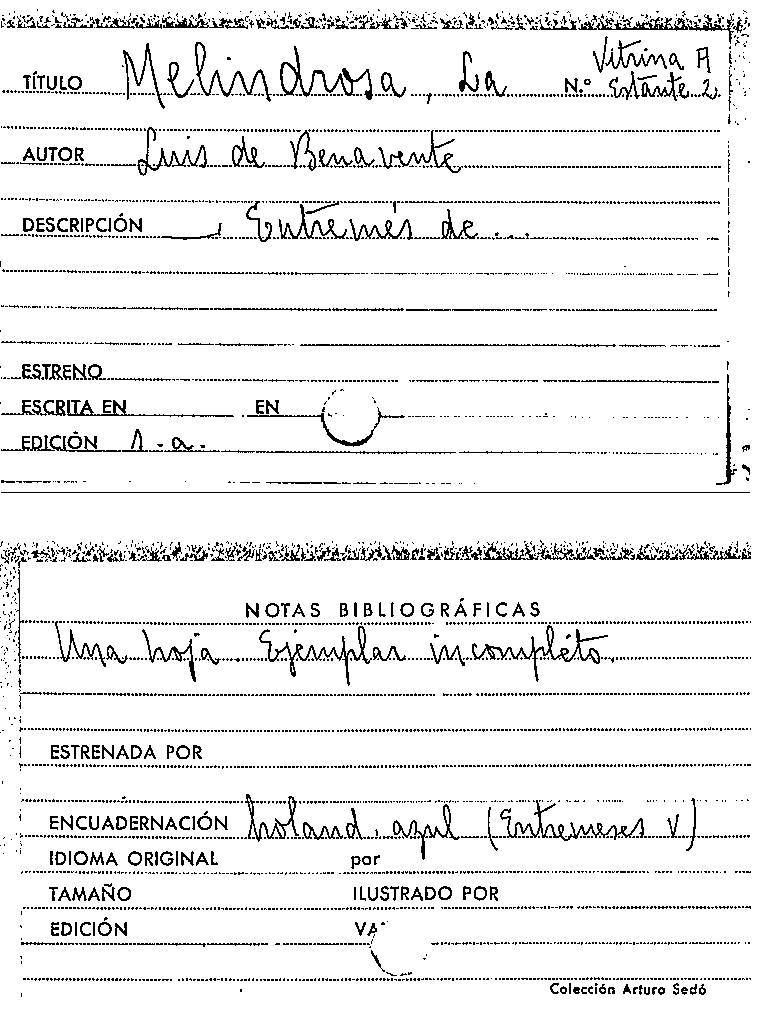 TÍTULO Melindrosa, La
Vitrina A
N.º Estante 2
AUTOR Luis de Benavente
DESCRIPCIÓN , Entremés de...
ESTRENO
ESCRITA EN EN
EDICIÓN 1.a.
NOTAS BIBLIOGRÁFICAS
Una hoja. Ejemplar incompléto.
ESTRENADA POR
ENCUADERNACIÓN holand. azul (Entremeses V)
IDIOMA ORIGINAL por
TAMAÑO ILUSTRADO POR
EDICIÓN
Colección Arturo Sedó